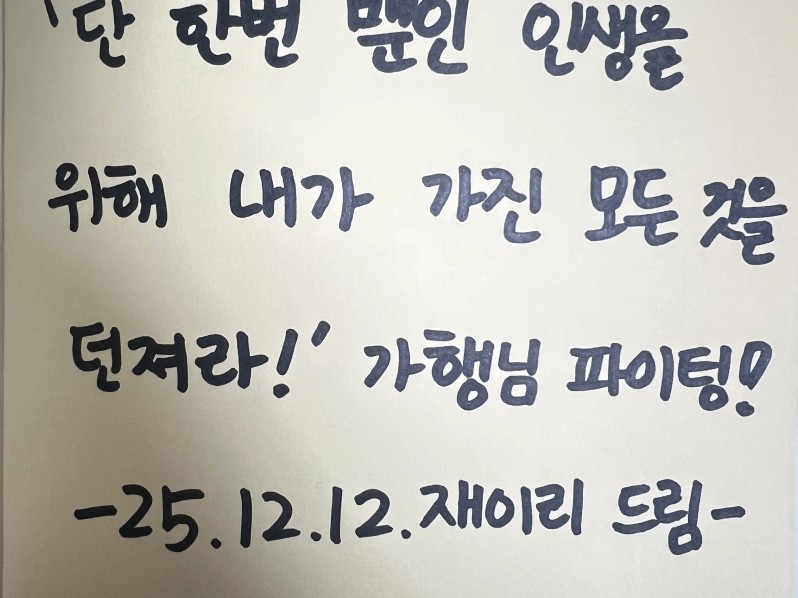 '단 한번 뿐인 인생을
위해 내가 가진 모든 것을
던져라!' 가행님 파이팅!
-25.12.12. 재이리 드림-